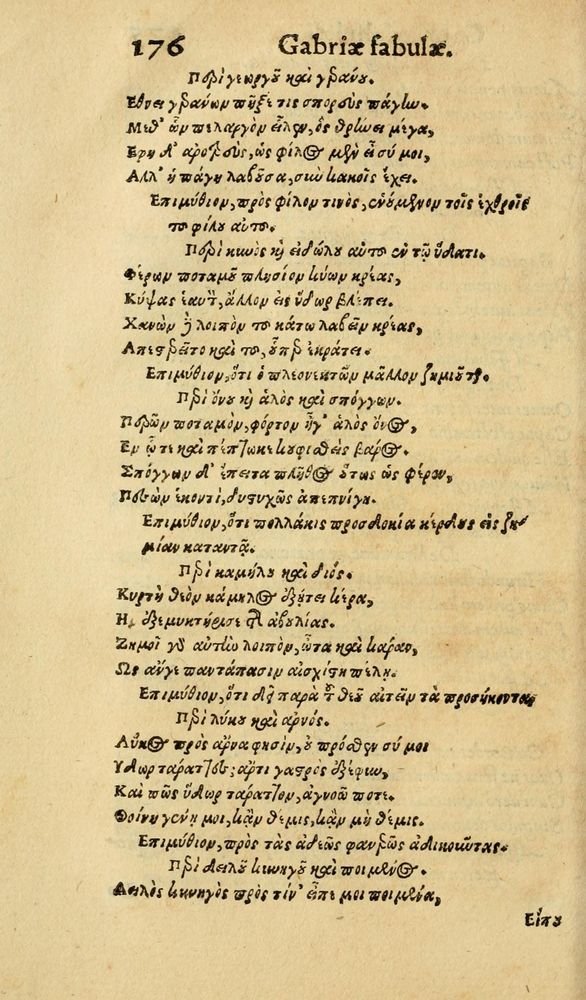 176 Gabriæ fabulæ.
Περὶ γεωργοῦ καὶ γεράνου.
Εθνει γεράνων πῆξέ τις σπορεὺς πάγην.
Μεθ' ὧν πελαργὸν εἷλεν, ὃς θρήνει μέγα,
Εφη δ' ἀροτρεὺς, ὡς φίλος μὲν εἶ σύ μοι,
Αλλ' ἡ πάγη λαβοῦσα, σὺν κακοῖς ἔχει.
Επιμύθιον, πρὸς φίλον τινὸς, ἑνούμενον τοῖς ἐχθροῖς
τοῦ φίλου αὐτοῦ.
Περὶ κυνὸς καὶ εἰδώλου αὐτοῦ ἐν τῷ ὕδατι.
Φέρων ποταμοῦ πλησίον κύων κρέας,
Κύψας ἑαυτὸν, ἄλλον εἰς ὕδωρ βλέπει.
Χανὼν δὲ λοιπὸν τὸ κάτω λαβεῖν κρέας,
Απεστερεῖτο καὶ τὸ, ὅπερ ἐκράτει.
Επιμύθιον, ὅτι ὁ πλεονεκτῶν μᾶλλον ζημιοῦται.
Περὶ ὄνου καὶ ἁλὸς καὶ σπόγγων.
Περῶν ποταμὸν, φόρτον ἦγ' ἁλὸς ὄνος,
Εν ᾧ τε καὶ πέπτωκε κουφισθεὶς βάρος.
Σπόγγων δ' ἔπειτα πλῆθος οὕτως ὡς φέρων,
Πεσὼν ἑκοντὶ, δυστυχῶς ἀπεπνίγη.
Επιμύθιον, ὅτι πολλάκις προσδοκία κέρδους εἰς ζη-
μίαν καταντᾷ.
Περὶ καμήλου καὶ διός.
Κυρτὴ θεὸν κάμηλος ἐξῄτει κέρα,
Η ἐξεμυκτήρισε τῆς ἀβουλίας.
Ζημοῖ γὰρ αὐτὴν λοιπὸν, ὦτα καὶ κάραν,
Ως αὖγε παντάπασιν αἰσχίστη πέλῃ.
Επιμύθιον, ὅτι δεῖ παρὰ τοῦ θεοῦ αἰτεῖν τὰ προσήκοντα.
Περὶ λύκου καὶ ἀρνός.
Λύκος πρὸς ἄρνα φησὶν, οὐ πρόσθεν σύ μοι
Υδωρ ταράττες; ἄρτι γαστρὸς ἐξέφυν,
Καὶ πῶς ὕδωρ ταράττον, ἀγνοῶ ποτε.
Θοίνη γένῃ μοι, κἂν θέμις, κἂν μὴ θέμις.
Επιμύθιον, πρὸς τὰς ἀδεῶς φανερῶς ἀδικοῦντας.
Περὶ δειλοῦ κυνηγοῦ καὶ ποιμένος.
Δειλὸς κυνηγὸς πρὸς τίν' εἶπέ μοι ποιμένα,
Εἶπου